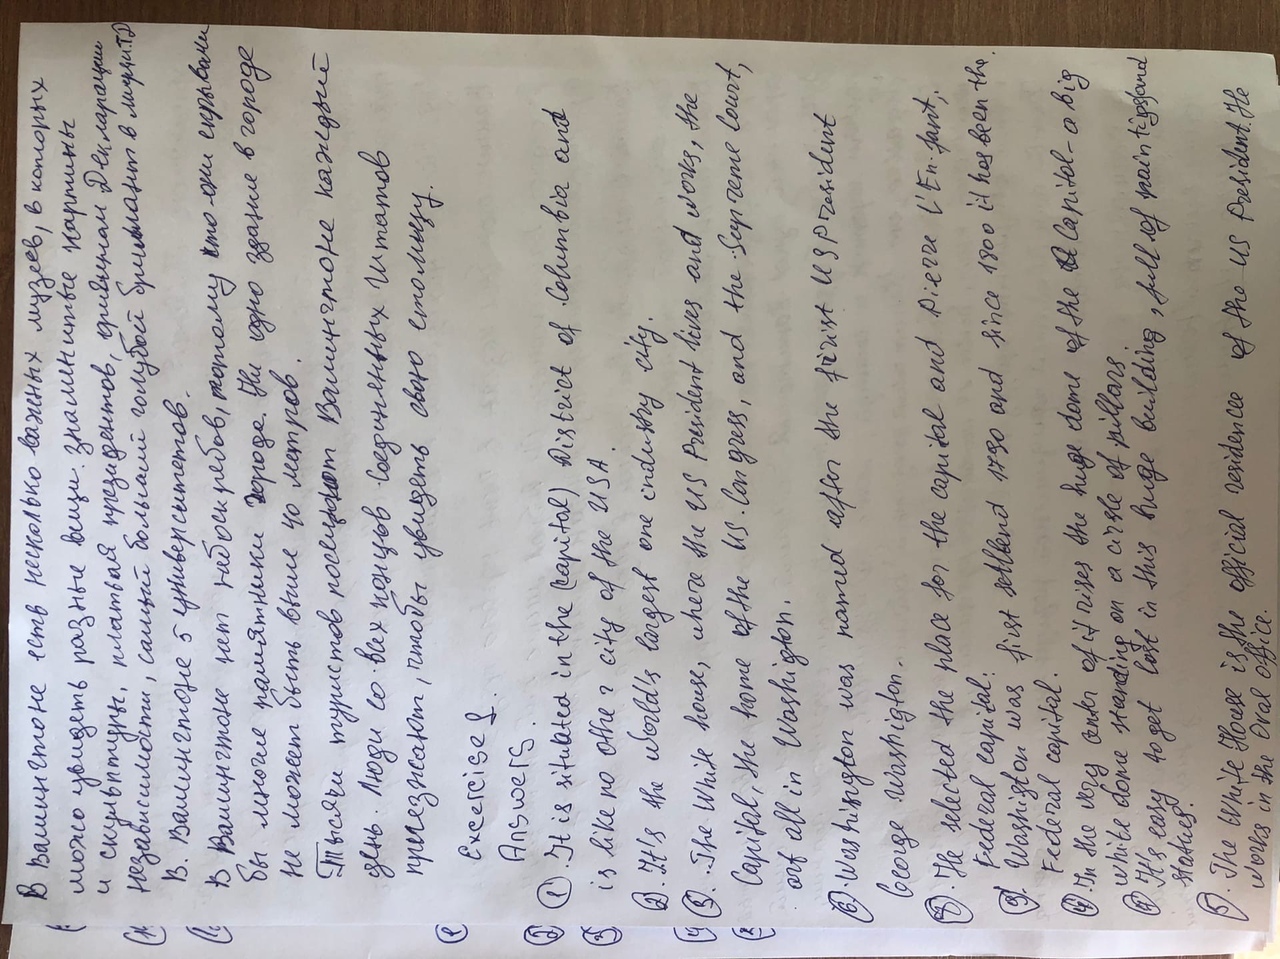 В Вашингтоне есть несколько важных музеев, в которых
можно увидеть разные вещи: знаменитые картины
и скульптуры, платья президентов, оригинал Декларации
независимости, самый большой голубой бриллиант в мире и т.д
В. Вашингтоне 5 университетов.
В Вашингтоне нет небоскребов, потому что они скрывали
бы многие памятники города. Ни одно здание в городе
не может быть выше 40 метров.
Тысячи туристов посещают Вашингтоне каждый
день. Люди со всех концов Соединенных Штатов
приезжают, чтобы увидеть свою столицу.
Excercise 1.
Answers.
1. It is situated in the (capital) District of Columbia and
is like no other city of the USA.
2. It's the world's largest one industry city.
3. The White house, where the US President lives and works, the
Capitol, the home of the US. Congress, and the Supreme Court,
are all in Washigton.
6. Washington was named after the first US President
George Washigton.
8. He selected the place for the capital and Pierre L'En. fant,
Federal capital.
9. Washigton was first settlend 1790 and since 1800 it has been the
Federal capital.
4. In the very center of it rises the huge dome of the Capitol - a big
white dome standing on a circle of pillars.
It's easy to get lost in this huge building, full of paintigs and
statues.
5. The White House is the official residence of the US President. He
works in the Oval office.